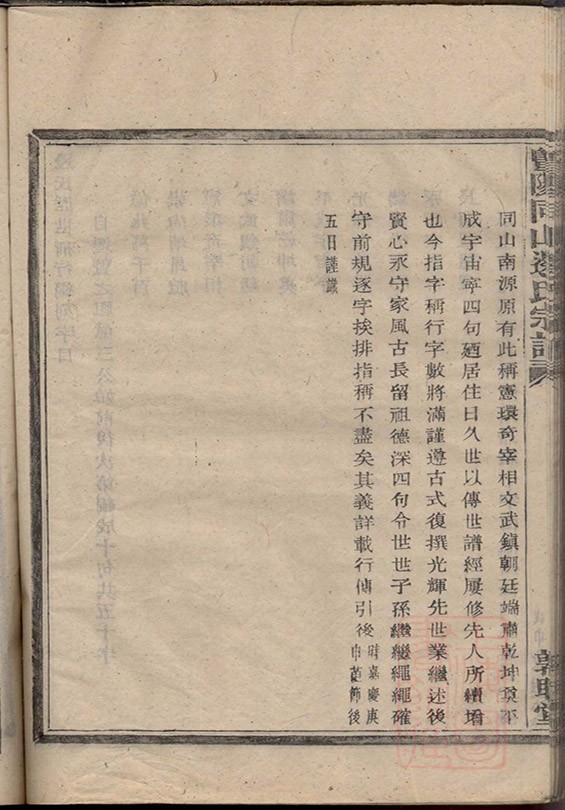 暨陽同山邊氏宗譜
同山南源原有此稱憲環奇宰相文武鎮朝廷端肅乾坤奠平
成宇宙寧四句廼居住日久世以傳世譜經屢修先人所續增
也今指字稱行字數將滿謹遵古式復撰光輝先世業繼述後
賢心永守家風古長留祖德深四句令世世子孫繼繼繩繩確
守前規逐字挨排指稱不盡矣其義詳載行傳引後 時嘉慶庚申菖節後
五日謹識